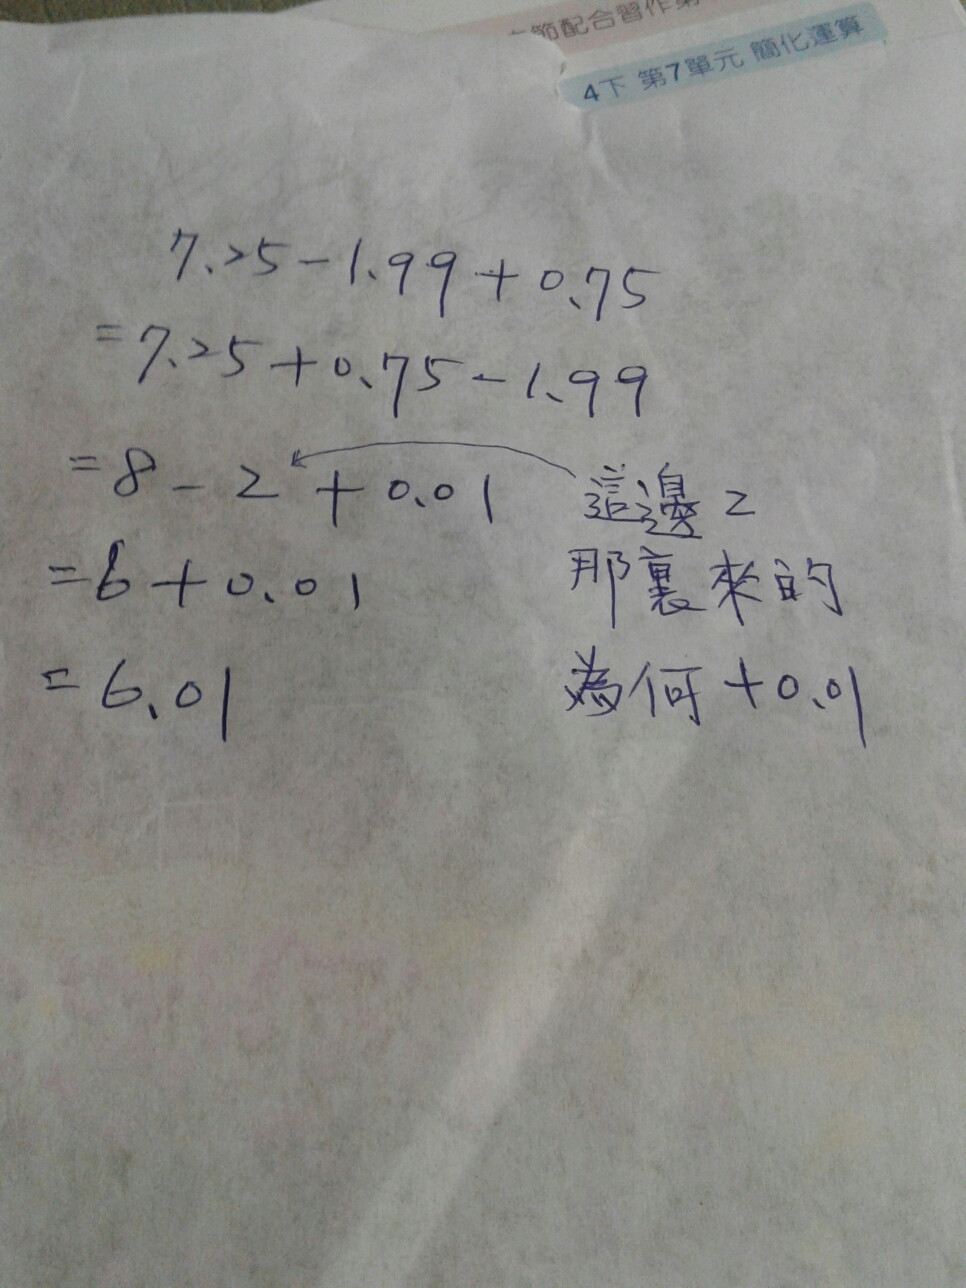 節配合習作第
4下 第7單元 簡化運算
7.25-1.99+0.75
=7.25+0.75-1.99
=8-2+0.01
這邊2
=6+0.01
那裏來的
=6.01
為何+0.01